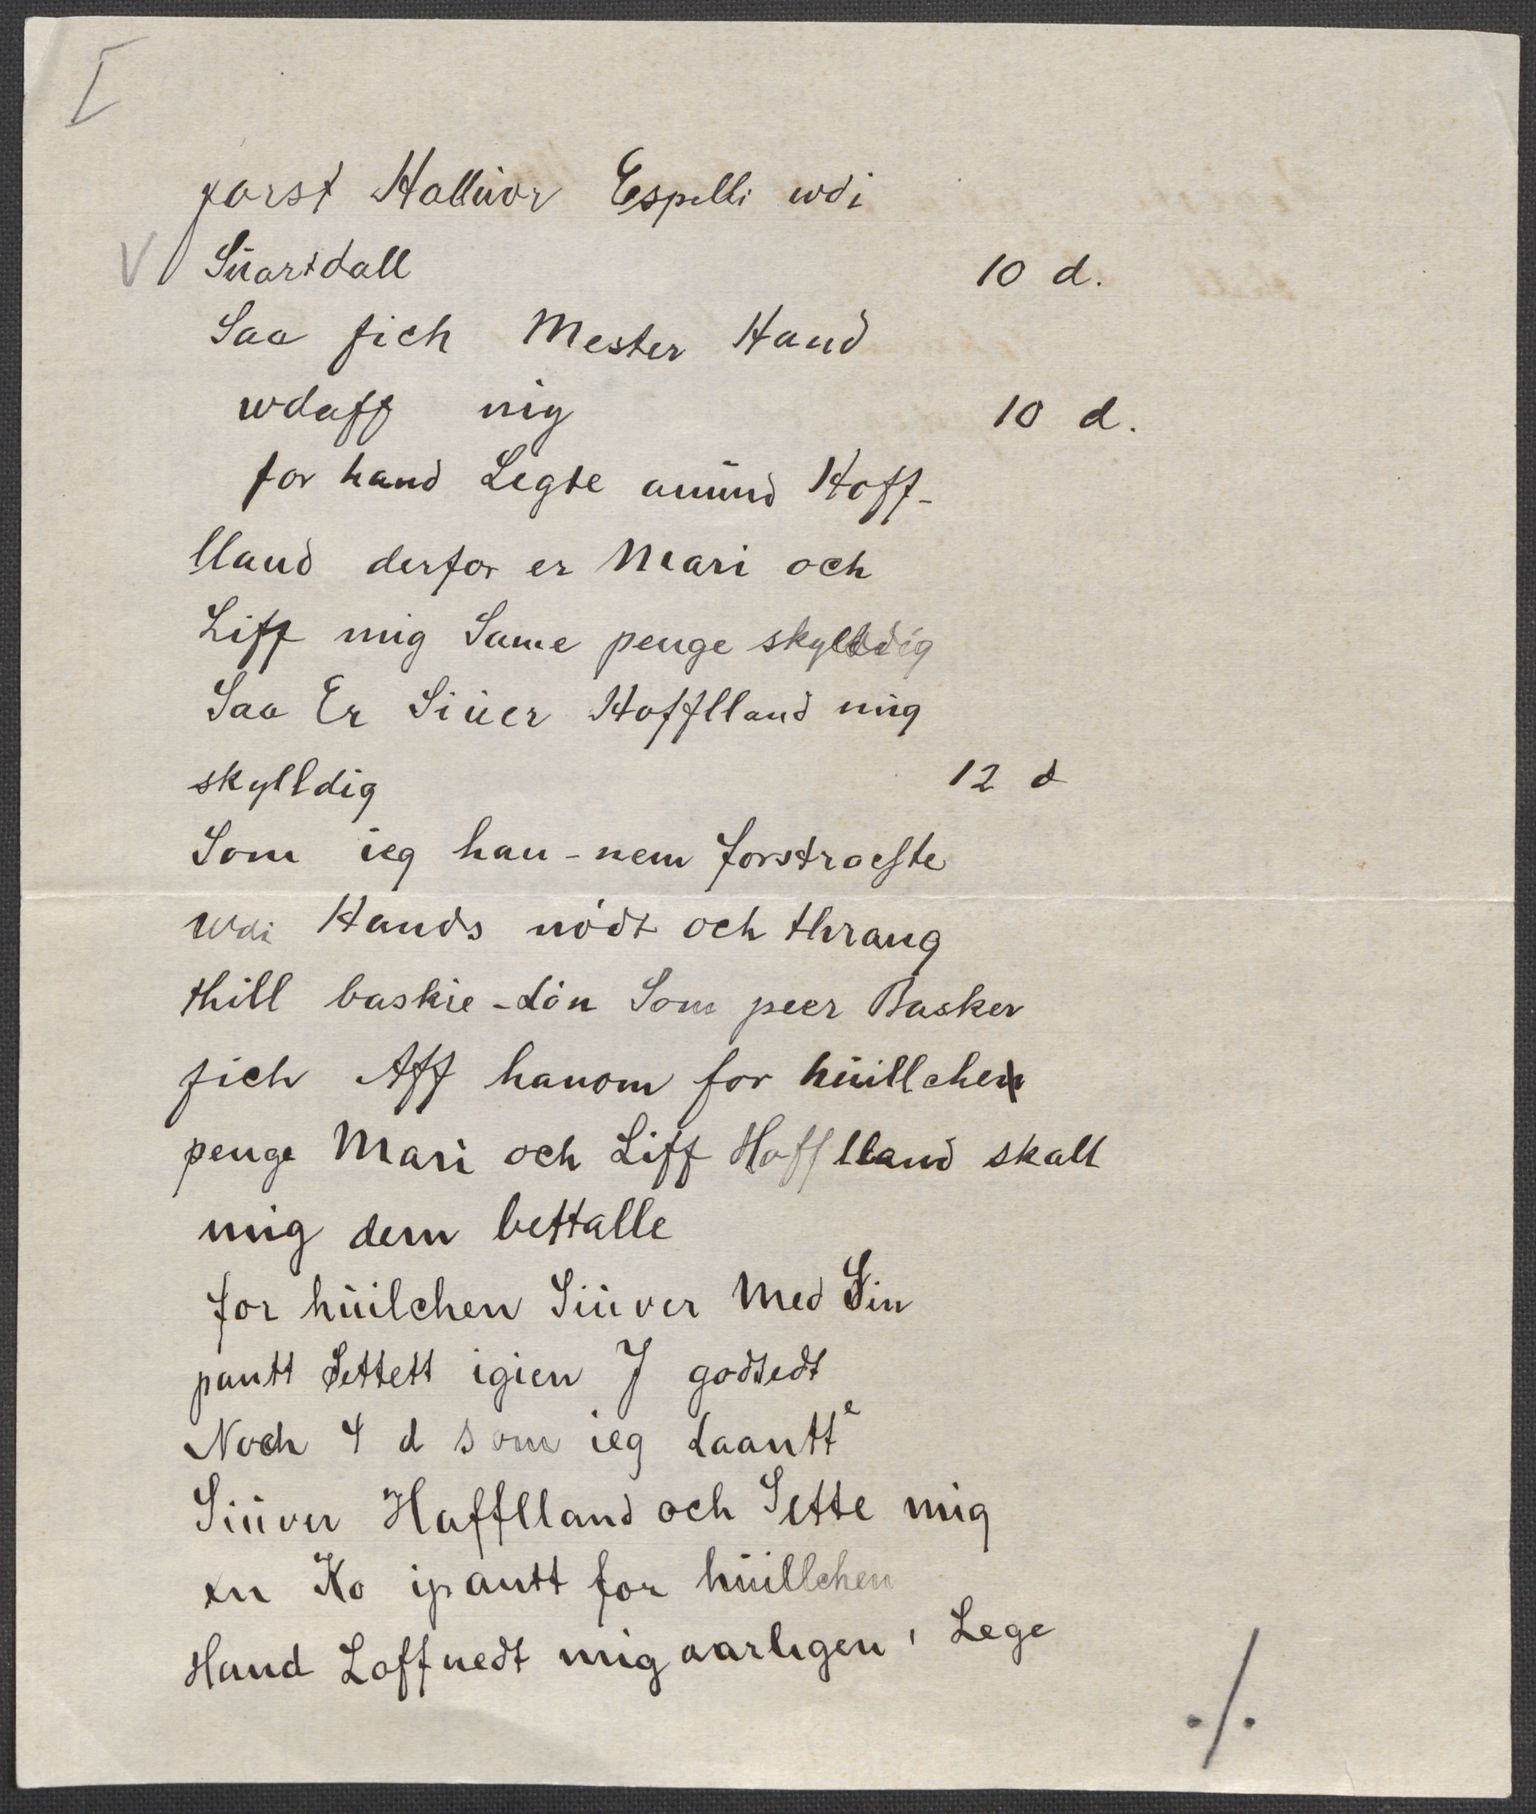 forst Hallüor Espelli wdi
V Süartdall 10 d.
Saa fich Mester Hand
wdaff mig 10 d.
for hand Legte amünd Hoff-
lland derfor er Mari och
Liff mig Same penge skylldig
Saa Er Siüer Hofflland mig
skylldig 12 d
Som ieg han-nem forstracfte
wdi Hands nódt och thrang
thill baskie-lón Som peer Basker
fich Aff hanom for hüillche
penge Mari och Liff Hofflland skall
mig dem bettalle
for hüilchen Siüver Med Sin
pantt Settett igien J godtedt
Noch 4 d som ieg laantte
Siüver Hafflland och Sette mig
en Ko ipantt for hüillchen
Hand Loffuedt mig aarligen, Lege
./.